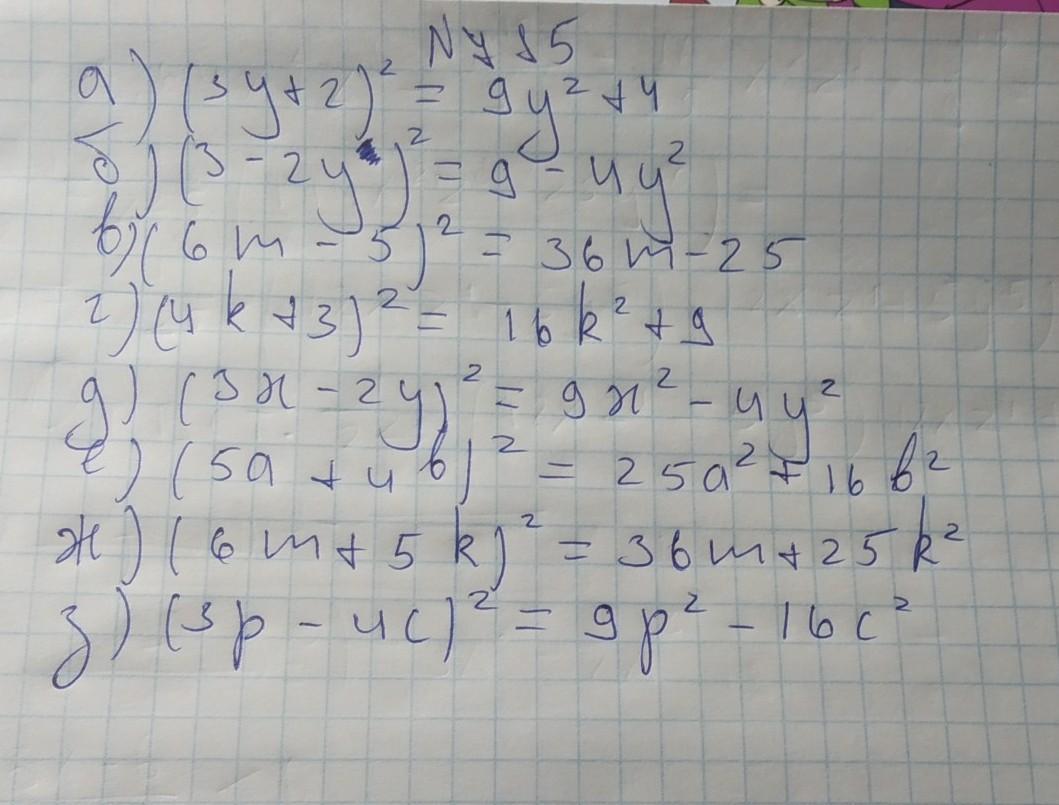 N 7 15
а) (3y+2)² = 9y² +4
б) (3 - 2y )² = 9 - 4y²
в) (6m - 5)² = 36m-25
г) (4k +3)² = 16k² + 9
д) (3x - 2y)² = 9x² - 4y²
е) (5a + 4b)² = 25a² + 16b²
ж) (6m+ 5k)² = 36m+25k²
з) (3p - 4c)² = 9p² - 16c²